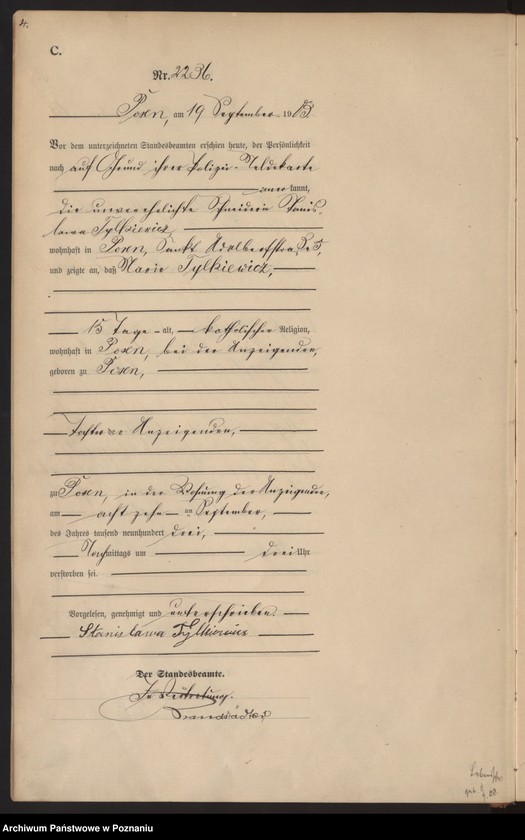 4.
C.
Nr. 2236.
Posen, am 19 September 1903
Vor dem unterzeichneten Standesbeamten erschien heute, der Persönlichkeit
nach auf Grund ihrer Polizei-Meldekarte
kannt,
die unverehelichte Schneiderin Stanis-
lawa Tylkiewicz,
wohnhaft in Posen, Sankt Adalbertstraße 5,
und zeigte an, daß Marie Tylkiewicz,
15 Tage alt, katholischer Religion,
wohnhaft in Posen, bei der Anzeigenden,
geboren zu Posen,
Tochter der Anzeigenden,
zu Posen, in der Wohnung der Anzeigenden,
am achtzehn ten September,
des Jahres tausend neunhundert drei,
Nachmittags um drei Uhr
verstorben sei.
Vorgelesen, genehmigt und unterschrieben.
Stanisława Tylkiewicz
Der Standesbeamte.
In Vertretung.
Archiwum Państwowe w Poznaniu